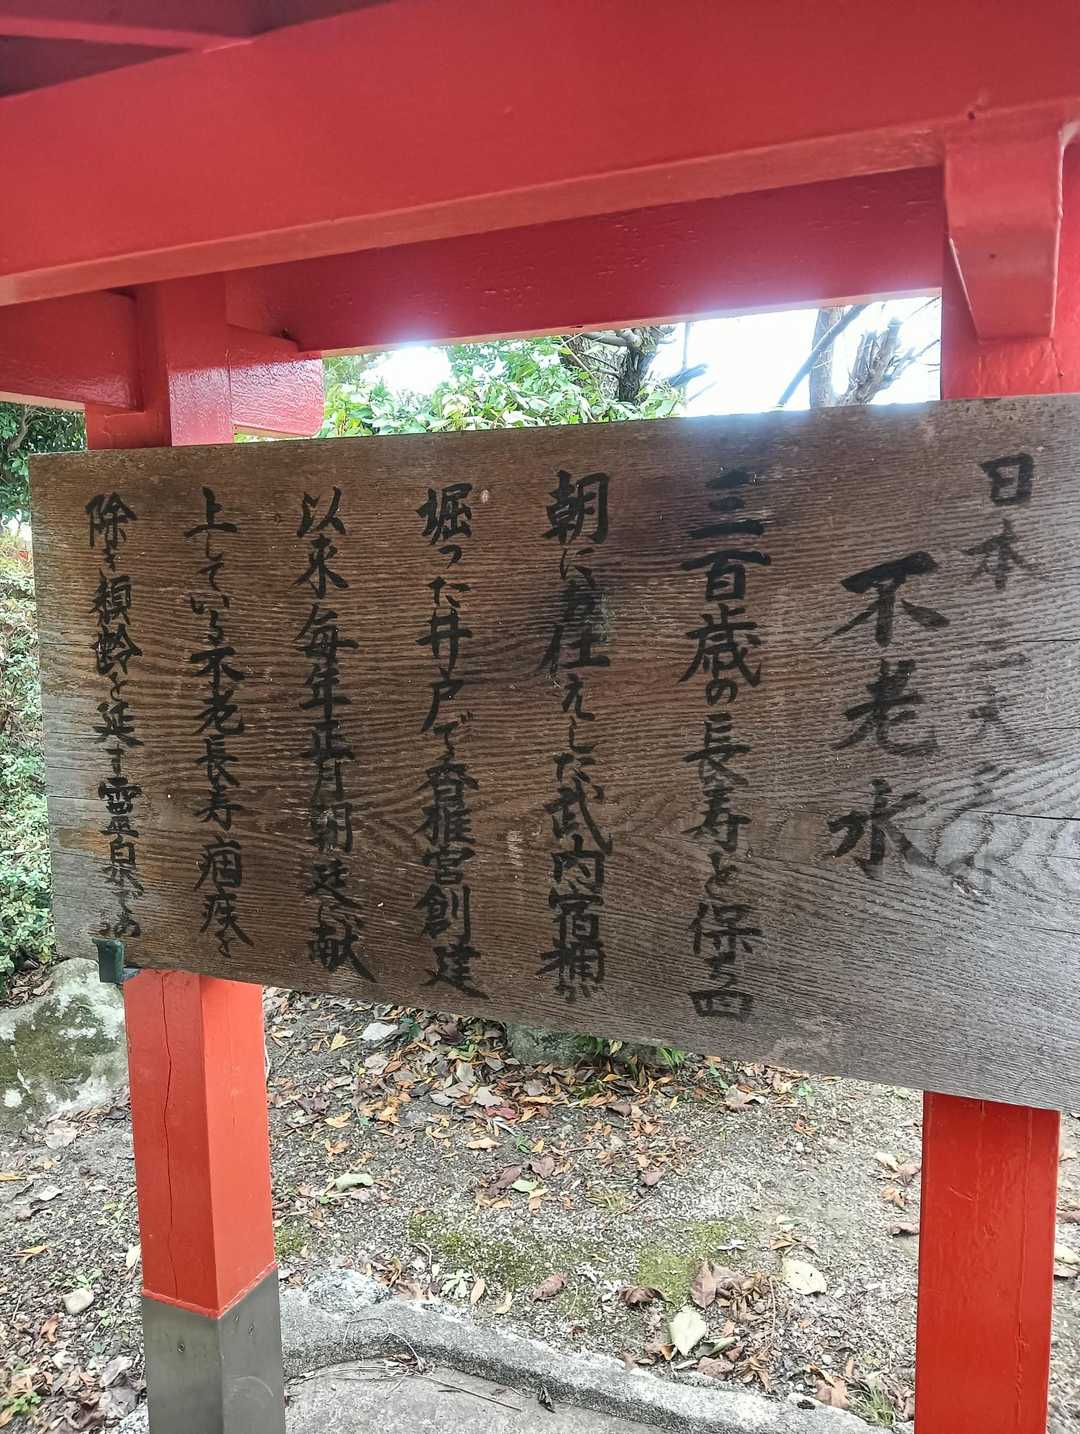 日本三大
不老水
三百歳の長寿と保ち四
朝にお仕えした武内宿禰が
堀った井戸で香椎宮創建
以来毎年正月朝廷献
上している不老長寿痼疾を
除き頽齢を延す霊泉であ